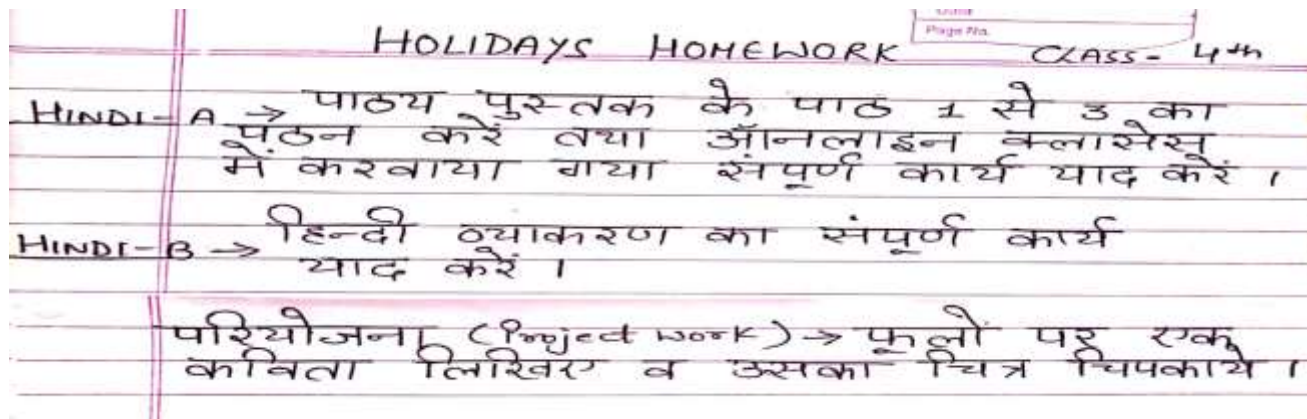 Page No.
HOLIDAYS HOMEWORK CLASS - 4th
HINDI - A → पाठय पुस्तक के पाठ 1 से 3 का
पठन करें तथा ऑनलाइन क्लासेस
में करवाया गया संपूर्ण कार्य याद करें ।
HINDI - B → हिन्दी व्याकरण का संपूर्ण कार्य
याद करें ।
परियोजना (Project work) → फूलों पर एक
कविता लिखिए व उसका चित्र चिपकाये ।